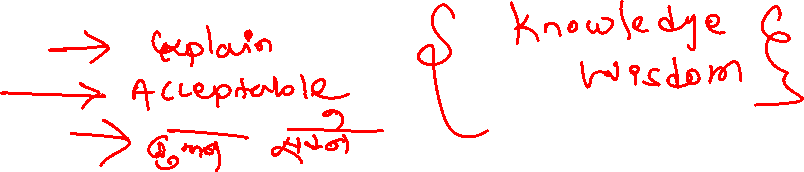 → Explain
→ Acceptable
→
{ Knowledge
Wisdom }